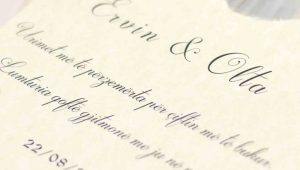 Ervin & Olta
Urimet më të përzemërta për çiftin më të bukur.
Lumturia qoftë gjithmonë me ju në
22/08/